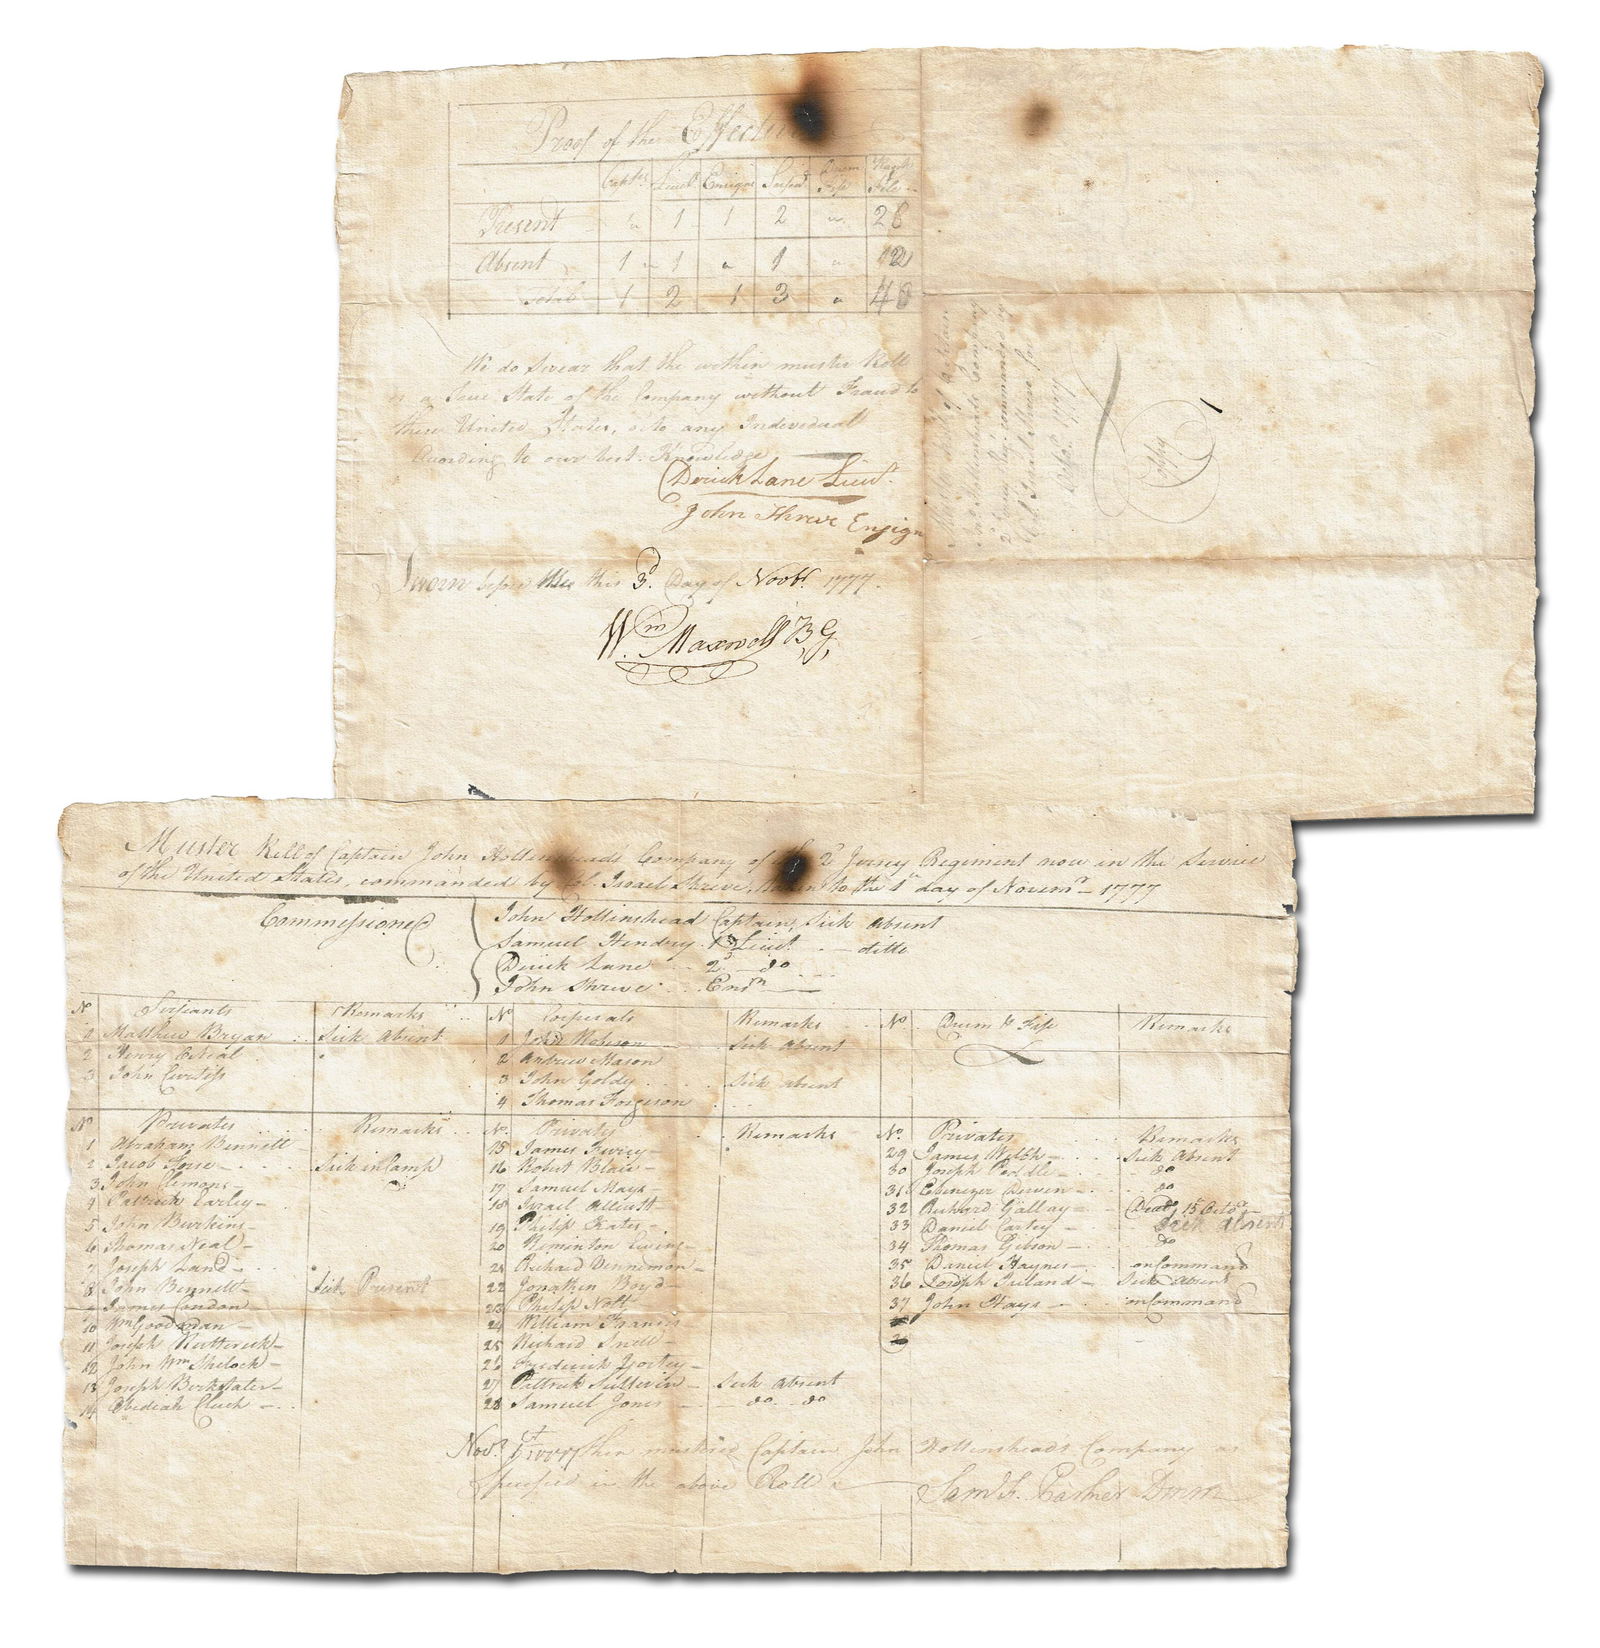 Proof of the Effecti
Capts Lieuts Ensigns Serjts Drum & Fife Rank & File
Present " 1 1 2 " 28
Absent 1 1 " 1 " 12
Total 1 2 1 3 " 40
We do Swear that the within muster Roll
is a True State of the Company without Fraud to
these United States, or to any Individual
According to our best Knowledge
Derick Lane Lieut.
John Shreve Ensign
Sworn before me this 3d. Day of Novbr. 1777.
Wm Maxwell B G,
Muster Roll of Captain
John Hollinsheads Company
2d Jersey Regt. commanded by
Col. Israel Shreve for
1777
Copy
Muster Roll of Captain John Hollinshead's Company of the 2d Jersey Regiment now in the Service
of the United States, commanded by Col. Israel Shreve, taken to the 1st day of Novemr- 1777
Commissioned
John Hollinshead Captain, Sick absent
Samuel Hendry 1st Lieut. - ditto
Derick Lane 2d do
John Shreve Ensn
No Serjeants Remarks No Corporals Remarks No. Drum & Fife Remarks
1 Matthew Bryan Sick Absent 1 John Robson Sick Absent
2 Henry ONeal 2 Andrew Mason
3 John Curtiss 3 John Goldy Sick absent
4 Thomas Forgeson
No Privates Remarks No. Privates Remarks No. Privates Remarks
1 Abraham Bennett 15 James 29 James Welch Sick Absent
2 Jacob Sick in Camp 16 Robert Blair 30 Joseph Peddle do
3 John Clemons 17 Samuel Mays 31 Ebenezer do
4 Patrick Earley 18 Israel 32 Richard Gallay Dead 15 Octobr
5 John Burkins 19 Philip Kates 33 Daniel Carley Sick absent
6 Thomas Neal 20 Reminton Ewing 34 Thomas Gibson do
7 Joseph Land 21 Richard Venneman 35 Daniel Haynes on Command
8 John Bennett Sick Present 22 Jonathen Boyd 36 Joseph Ireland Sick Absent
9 James Condon 23 Philip Nolt 37 John Hays on Command
10 Wm Goodman 24 William Francis
11 Joseph Butterick 25 Richard Snell
12 John Wm Shilock 26 Frederick
13 Joseph 27 Pattrick Sullivin Sick absent
14 Obediah Cluck 28 Samuel Jones do do
Novr. 1st 1777 then mustered Captain John Hollinshead's Company as
Specified in the above Roll